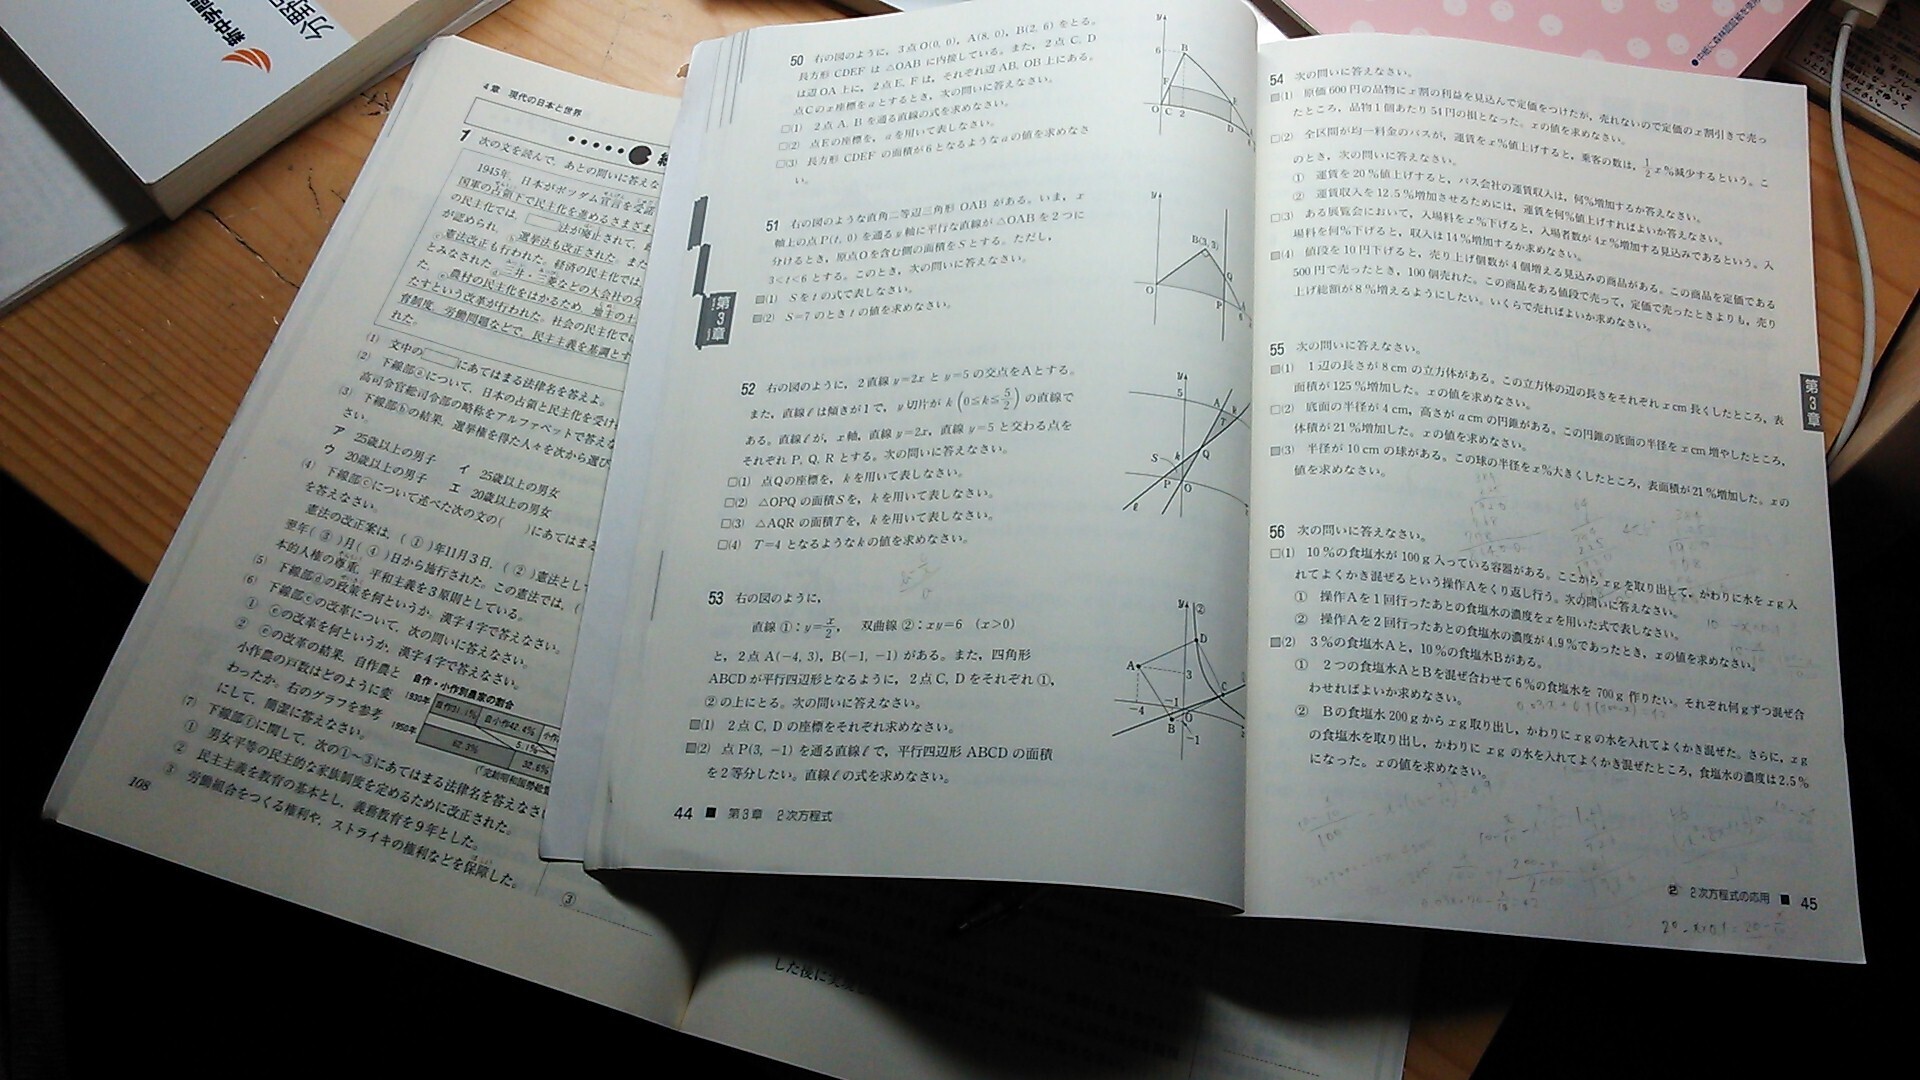 新中学問
4章 現代の日本と世界
1 次の文を読んで，あとの問いに答えな
1945年，日本がポツダム宣言を受諾
国軍の占領下で民主化を進めるさまざま
の民主化では，
法が廃止されて，
が認められ，
選挙法も改正された。また
憲法改正も行われた。経済の民主化では
とみなされた三井・三菱などの大会社の分
た。農村の民主化をはかるため，地主の土
たすという改革が行われた。社会の民主化で
官制度，労働問題などで，民主主義を基調とす
れた。
(1) 文中の にあてはまる法律名を答えよ。
(2) 下線部ⓐについて，日本の占領と民主化を受け
高司令官総司令部の略称をアルファベットで答えな
さい。
(3) 下線部ⓑの結果，選挙権を得た人々を次から選び
ア 25歳以上の男子 イ 25歳以上の男女
ウ 20歳以上の男子 エ 20歳以上の男女
(4) 下線部ⓒについて述べた次の文の( )にあてはまる
を答えなさい。
憲法の改正案は，(①)年11月3日，(②)憲法とし
翌年(③)月(④)日から施行された。この憲法では，(
本的人権の尊重，平和主義を3原則としている。
(5) 下線部ⓓの政策を何というか。漢字4字で答えなさい。
(6) 下線部ⓔの改革について，次の問いに答えなさい。
① ⓔの改革を何というか，漢字4字で答えなさい。
② ⓔの改革の結果，自作農と
小作農の戸数はどのように変
わったか。右のグラフを参考
にして，簡潔に答えなさい。
自作・小作別農家の割合
1930年
自作31.1%
自小作42.4%
1950年
62.3%
32.6%
5.1%
(7) 下線部ⓕに関して，次の①～③にあてはまる法律名を答えなさい
① 男女平等の民主的な家族制度を定めるために改正された。
② 民主主義を教育の基本とし，義務教育を9年とした。
③ 労働組合をつくる権利や，ストライキの権利などを保障した。
108
③
50 右の図のように，3点O(0, 0)，A(8, 0)，B(2, 6)をとる。
長方形 CDEF は △OAB に内接している。また，2点 C, D
は辺 OA 上に，2点 E, F は，それぞれ辺 AB, OB 上にある。
点Cのx座標をaとするとき，次の問いに答えなさい。
(1) 2点 A, B を通る直線の式を求めなさい。
(2) 点Eの座標を，aを用いて表しなさい。
(3) 長方形 CDEF の面積が6となるようなaの値を求めなさ
い。
y
6
B
F
E
O C 2
D
51 右の図のような直角二等辺三角形 OAB がある。いま，x
軸上の点P(t, 0)を通るy軸に平行な直線が△OABを2つに
分けるとき，原点Oを含む側の面積をSとする。ただし，
3<t<6 とする。このとき，次の問いに答えなさい。
(1) Sをtの式で表しなさい。
(2) S=7 のときtの値を求めなさい。
y
B(3, 3)
Q
O
P
A
6
第3章
52 右の図のように，2直線 y=2x と y=5 の交点をAとする。
また，直線ℓは傾きが1で，y切片がk (0≦k≦5/2) の直線で
ある。直線ℓが，x軸，直線 y=2x，直線 y=5 と交わる点を
それぞれ P, Q, R とする。次の問いに答えなさい。
(1) 点Qの座標を，kを用いて表しなさい。
(2) △OPQ の面積Sを，kを用いて表しなさい。
(3) △AQR の面積Tを，kを用いて表しなさい。
(4) T=4 となるようなkの値を求めなさい。
y
5
A
R
T
S
k
Q
P
O
ℓ
53 右の図のように，
直線①：y=x/2， 双曲線②：xy=6 (x>0)
と，2点 A(-4, 3)，B(-1, -1)がある。また，四角形
ABCDが平行四辺形となるように，2点C, Dをそれぞれ①，
②の上にとる。次の問いに答えなさい。
(1) 2点 C, D の座標をそれぞれ求めなさい。
(2) 点 P(3, -1)を通る直線ℓで，平行四辺形 ABCD の面積
を2等分したい。直線ℓの式を求めなさい。
y
②
D
A
3
C
-1
-4
O
B
-1
44 ■ 第3章 2次方程式
54 次の問いに答えなさい。
(1) 原価600円の品物にx割の利益を見込んで定価をつけたが，売れないので定価のx割引きで売っ
たところ，品物1個あたり54円の損となった。xの値を求めなさい。
(2) 全区間が均一料金のバスが，運賃をx%値上げすると，乗客の数は，1/2x%減少するという。こ
のとき，次の問いに答えなさい。
① 運賃を20%値上げすると，バス会社の運賃収入は，何%増加するか答えなさい。
② 運賃収入を12.5%増加させるためには，運賃を何%値上げすればよいか答えなさい。
(3) ある展覧会において，入場料をx%下げると，入場者数が4x%増加する見込みであるという。入
場料を何%下げると，収入は14%増加するか求めなさい。
(4) 値段を10円下げると，売り上げ個数が4個増える見込みの商品がある。この商品を定価である
500円で売ったとき，100個売れた。この商品をある値段で売って，定価で売ったときよりも，売り
上げ総額が8%増えるようにしたい。いくらで売ればよいか求めなさい。
55 次の問いに答えなさい。
(1) 1辺の長さが8cmの立方体がある。この立方体の辺の長さをそれぞれxcm長くしたところ，表
面積が125%増加した。xの値を求めなさい。
(2) 底面の半径が4cm，高さがacmの円錐がある。この円錐の底面の半径をxcm増やしたところ，
体積が21%増加した。xの値を求めなさい。
(3) 半径が10cmの球がある。この球の半径をx%大きくしたところ，表面積が21%増加した。xの
値を求めなさい。
第3章
56 次の問いに答えなさい。
(1) 10%の食塩水が100g入っている容器がある。ここからxgを取り出して，かわりに水をxg入
れてよくかき混ぜるという操作Aをくり返し行う。次の問いに答えなさい。
① 操作Aを1回行ったあとの食塩水の濃度をxを用いた式で表しなさい。
② 操作Aを2回行ったあとの食塩水の濃度が4.9%であったとき，xの値を求めなさい。
(2) 3%の食塩水Aと，10%の食塩水Bがある。
① 2つの食塩水AとBを混ぜ合わせて6%の食塩水を700g作りたい。それぞれ何gずつ混ぜ合
わせればよいか求めなさい。
② Bの食塩水200gからxg取り出し，かわりにxgの水を入れてよくかき混ぜた。さらに，xg
の食塩水を取り出し，かわりにxgの水を入れてよくかき混ぜたところ，食塩水の濃度は2.5%
になった。xの値を求めなさい。
② 2次方程式の応用 ■ 45